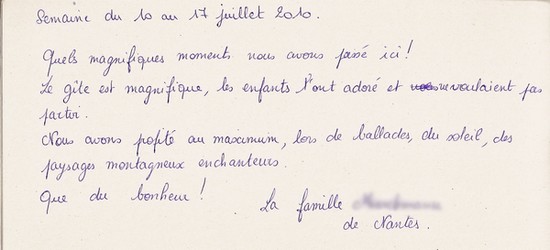 Semaine du 10 au 17 juillet 2010.
Quels magnifiques moments nous avons passé ici !
Le gîte est magnifique, les enfants l'ont adoré et ne voulaient pas
partir.
Nous avons profité au maximum, lors de ballades, du soleil, des
paysages montagneux enchanteurs.
Que du bonheur !
La famille
de Nantes.